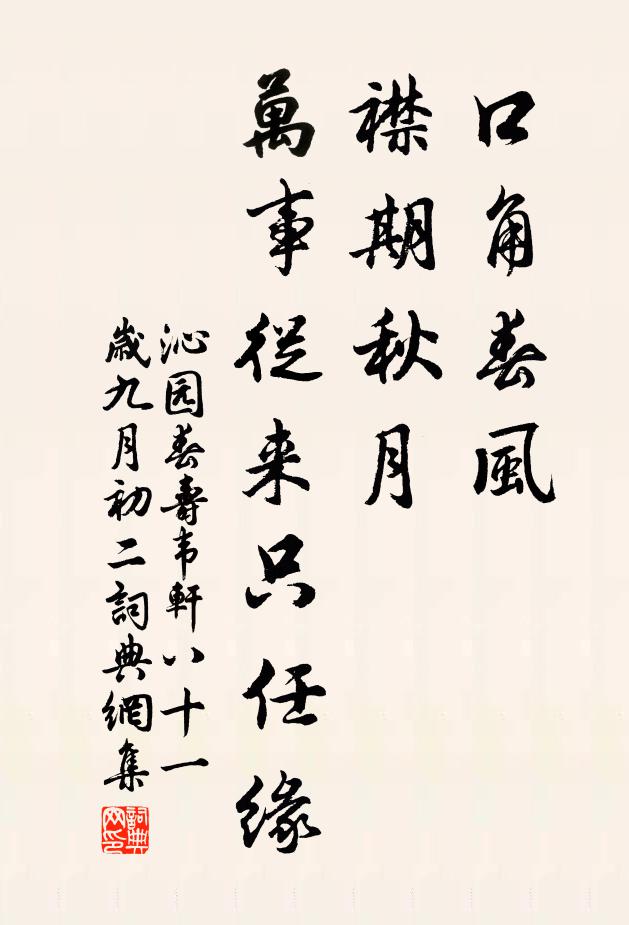 口角春風
襟期秋月
萬事從来只任緣
沁园春壽韦軒八十一
歲九月初二詞典網集
詞典網印